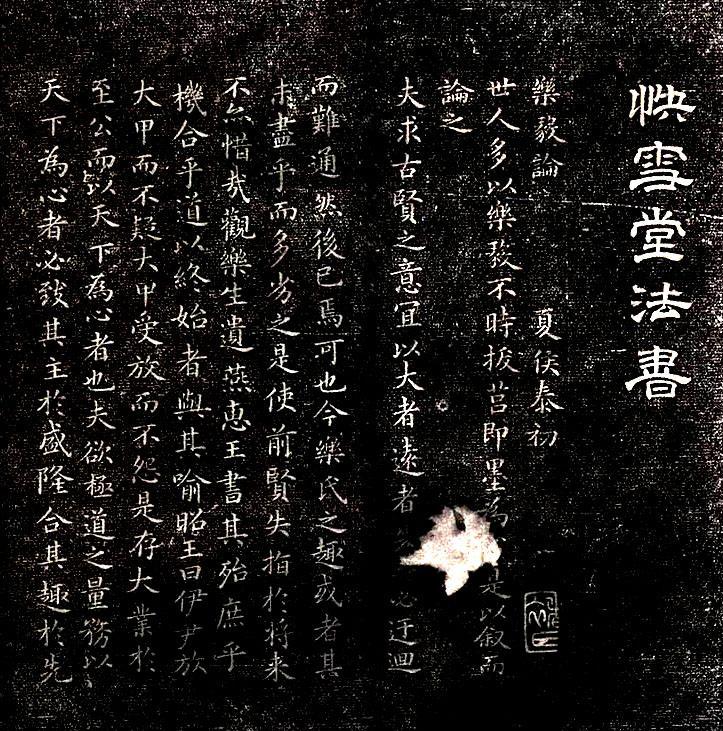 快雪堂法書
樂毅論 夏侯泰初
世人多以樂毅不時拔莒即墨為 是以叙而
論之
夫求古賢之意宜以大者遠者 必迂迴
而難通然後已焉可也今樂氏之趣或者其
未盡乎而多劣之是使前賢失指於將来
不然惜哉觀樂生遺燕惠王書其殆庶乎
機合乎道以終始者與其喻昭王曰伊尹放
大甲而不疑大甲受放而不怨是存大業於
至公而以天下為心者也夫欲極道之量務以
天下為心者必致其主於盛隆合其趣於先